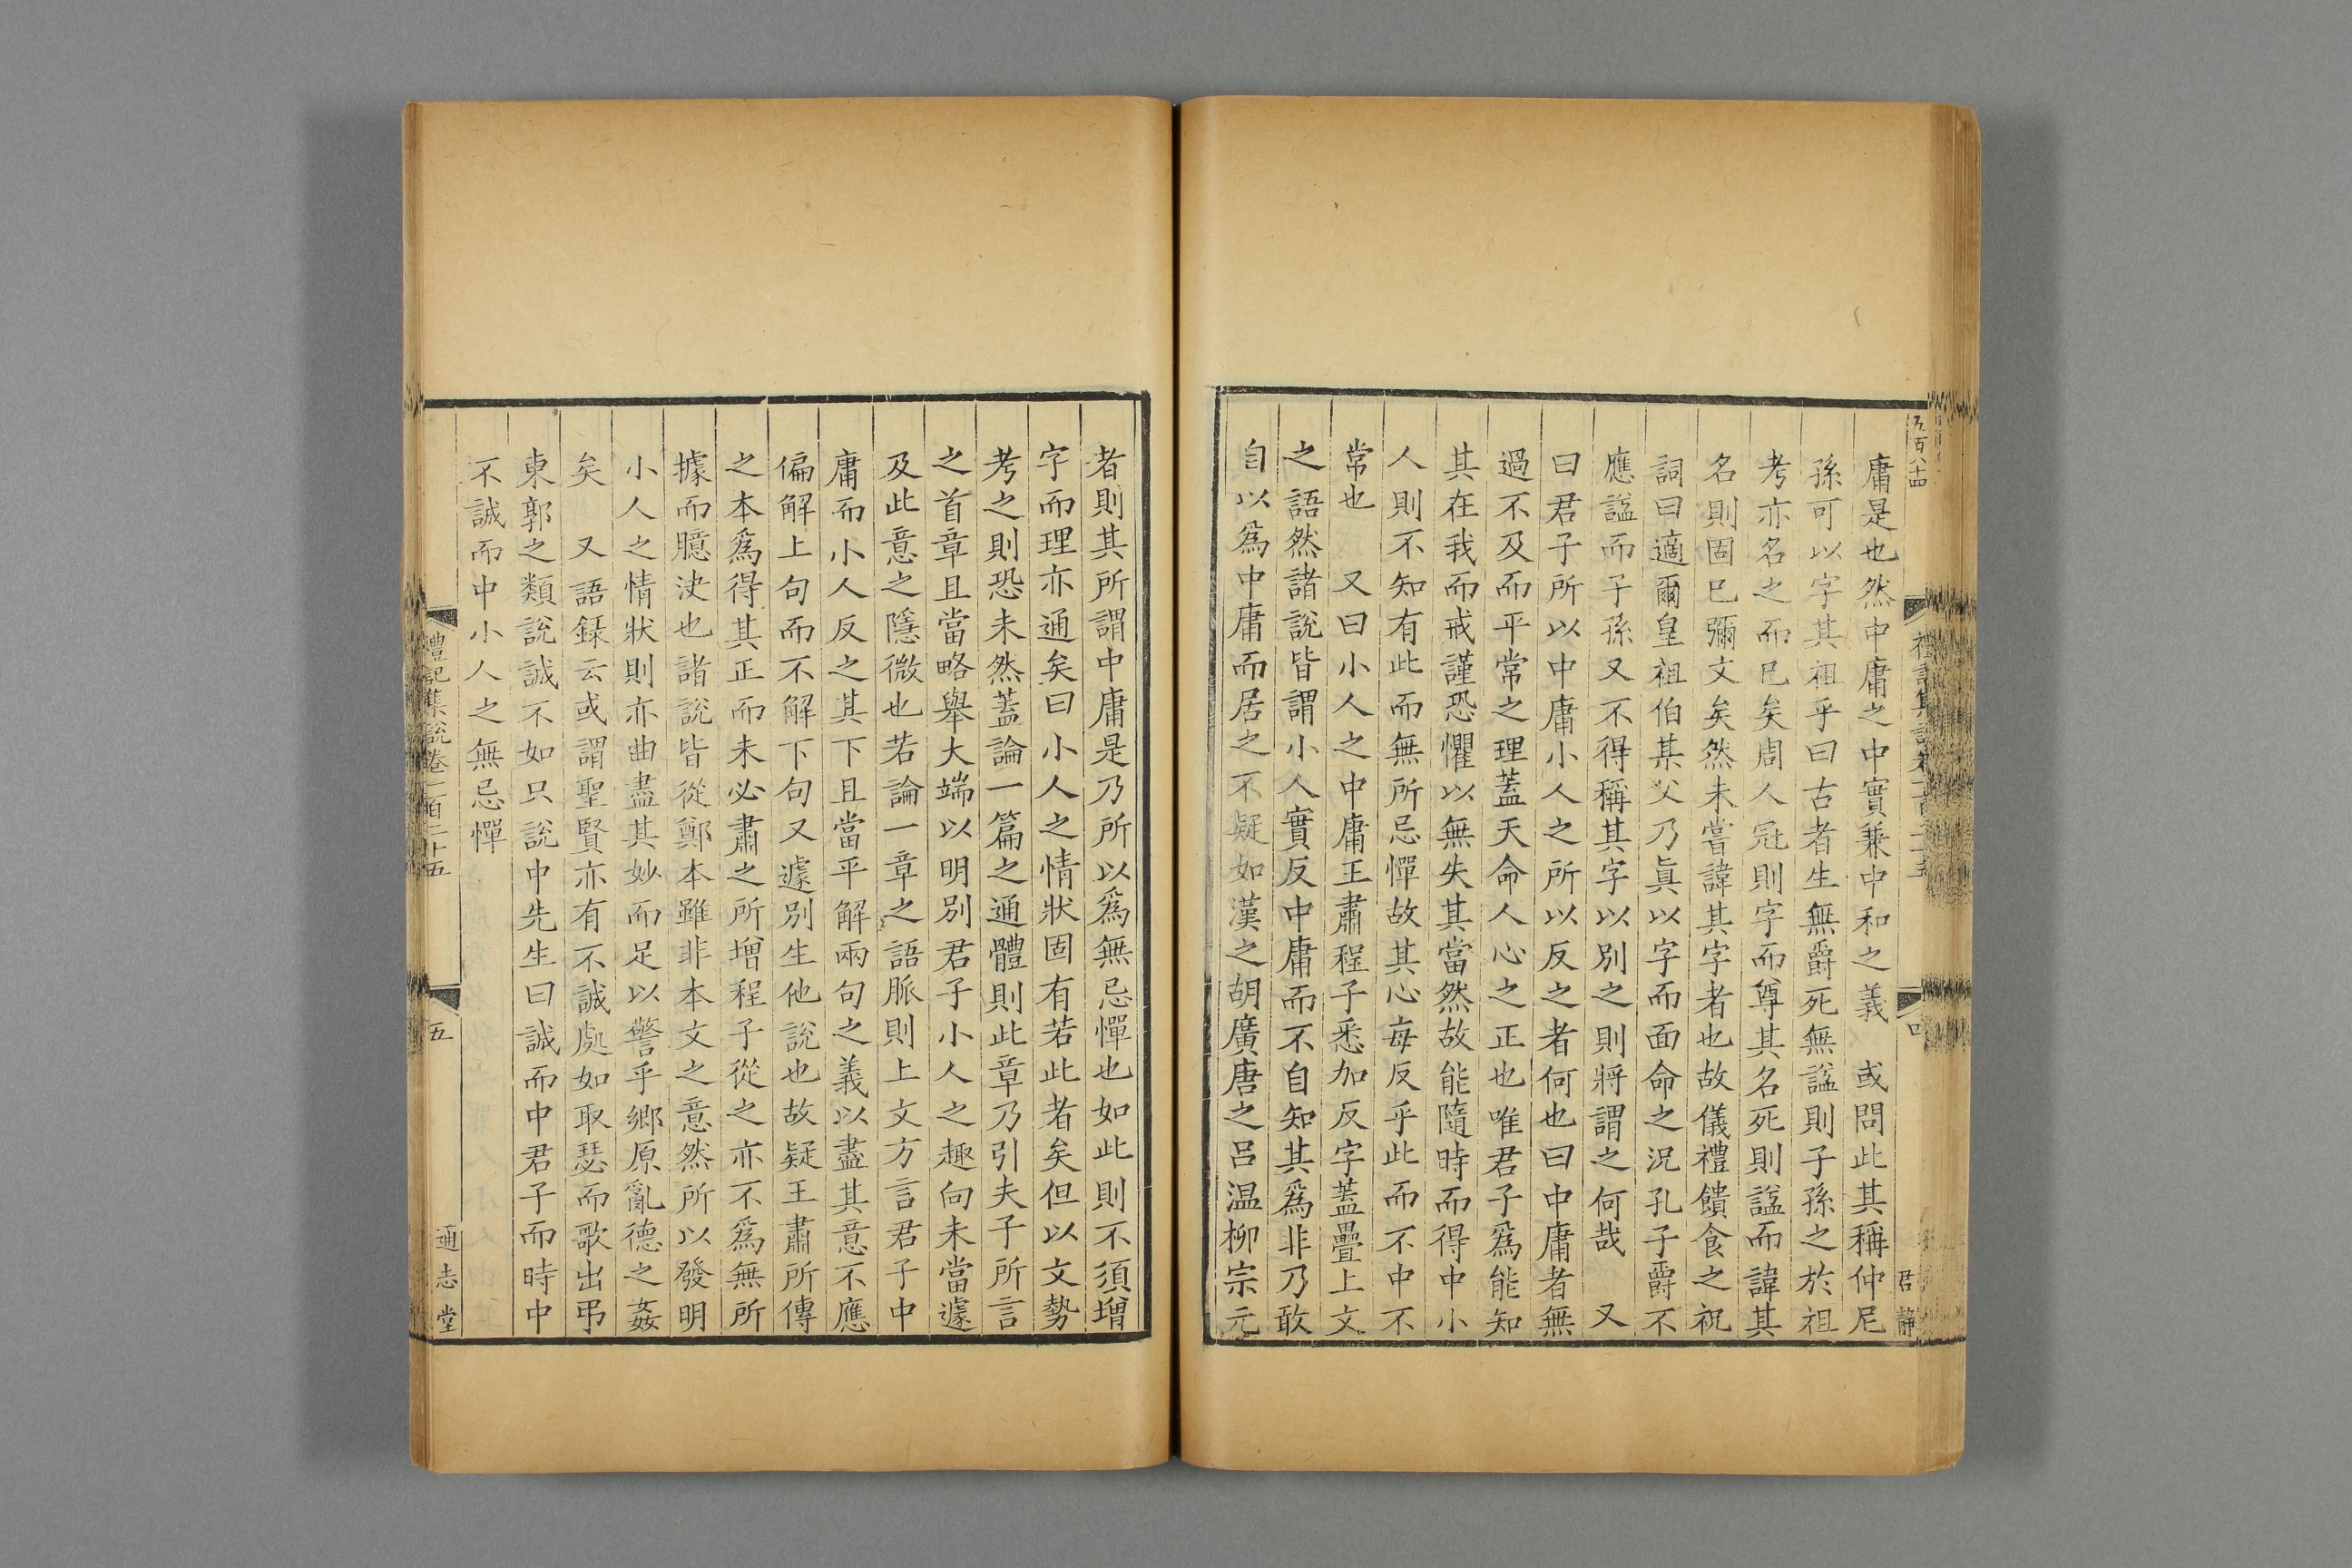 五百八十四
禮記集說卷一百二十五
四
君 靜
庸是也然中庸之中實兼中和之義 或問此其稱仲尼
孫可以字其祖乎曰古者生無爵死無諡則子孫之於祖
考亦名之而已矣周人冠則字而尊其名死則諡而諱其
名則固已彌文矣然未嘗諱其字者也故儀禮饋食之祝
詞曰適爾皇祖伯某父乃眞以字而面命之況孔子爵不
應諡而子孫又不得稱其字以別之則將謂之何哉 又
曰君子所以中庸小人之所以反之者何也曰中庸者無
過不及而平常之理蓋天命人心之正也唯君子爲能知
其在我而戒謹恐懼以無失其當然故能隨時而得中小
人則不知有此而無所忌憚故其心每反乎此而不中不
常也 又曰小人之中庸王肅程子悉加反字蓋疊上文
之語然諸說皆謂小人實反中庸而不自知其爲非乃敢
自以爲中庸而居之不疑如漢之胡廣唐之呂温柳宗元
者則其所謂中庸是乃所以爲無忌憚也如此則不須增
字而理亦通矣曰小人之情狀固有若此者矣但以文勢
考之則恐未然蓋論一篇之通體則此章乃引夫子所言
之首章且當略舉大端以明別君子小人之趣向未當遽
及此意之隱微也若論一章之語脈則上文方言君子中
庸而小人反之其下且當平解兩句之義以盡其意不應
偏解上句而不解下句又遽別生他說也故疑王肅所傳
之本爲得其正而未必肅之所增程子從之亦不爲無所
據而臆決也諸說皆從鄭本雖非本文之意然所以發明
小人之情狀則亦曲盡其妙而足以警乎鄉原亂德之姦
矣 又語録云或謂聖賢亦有不誠處如取瑟而歌出弔
東郭之類說誠不如只說中先生曰誠而中君子而時中
不誠而中小人之無忌憚
禮記集說卷一百二十五
五
通志堂